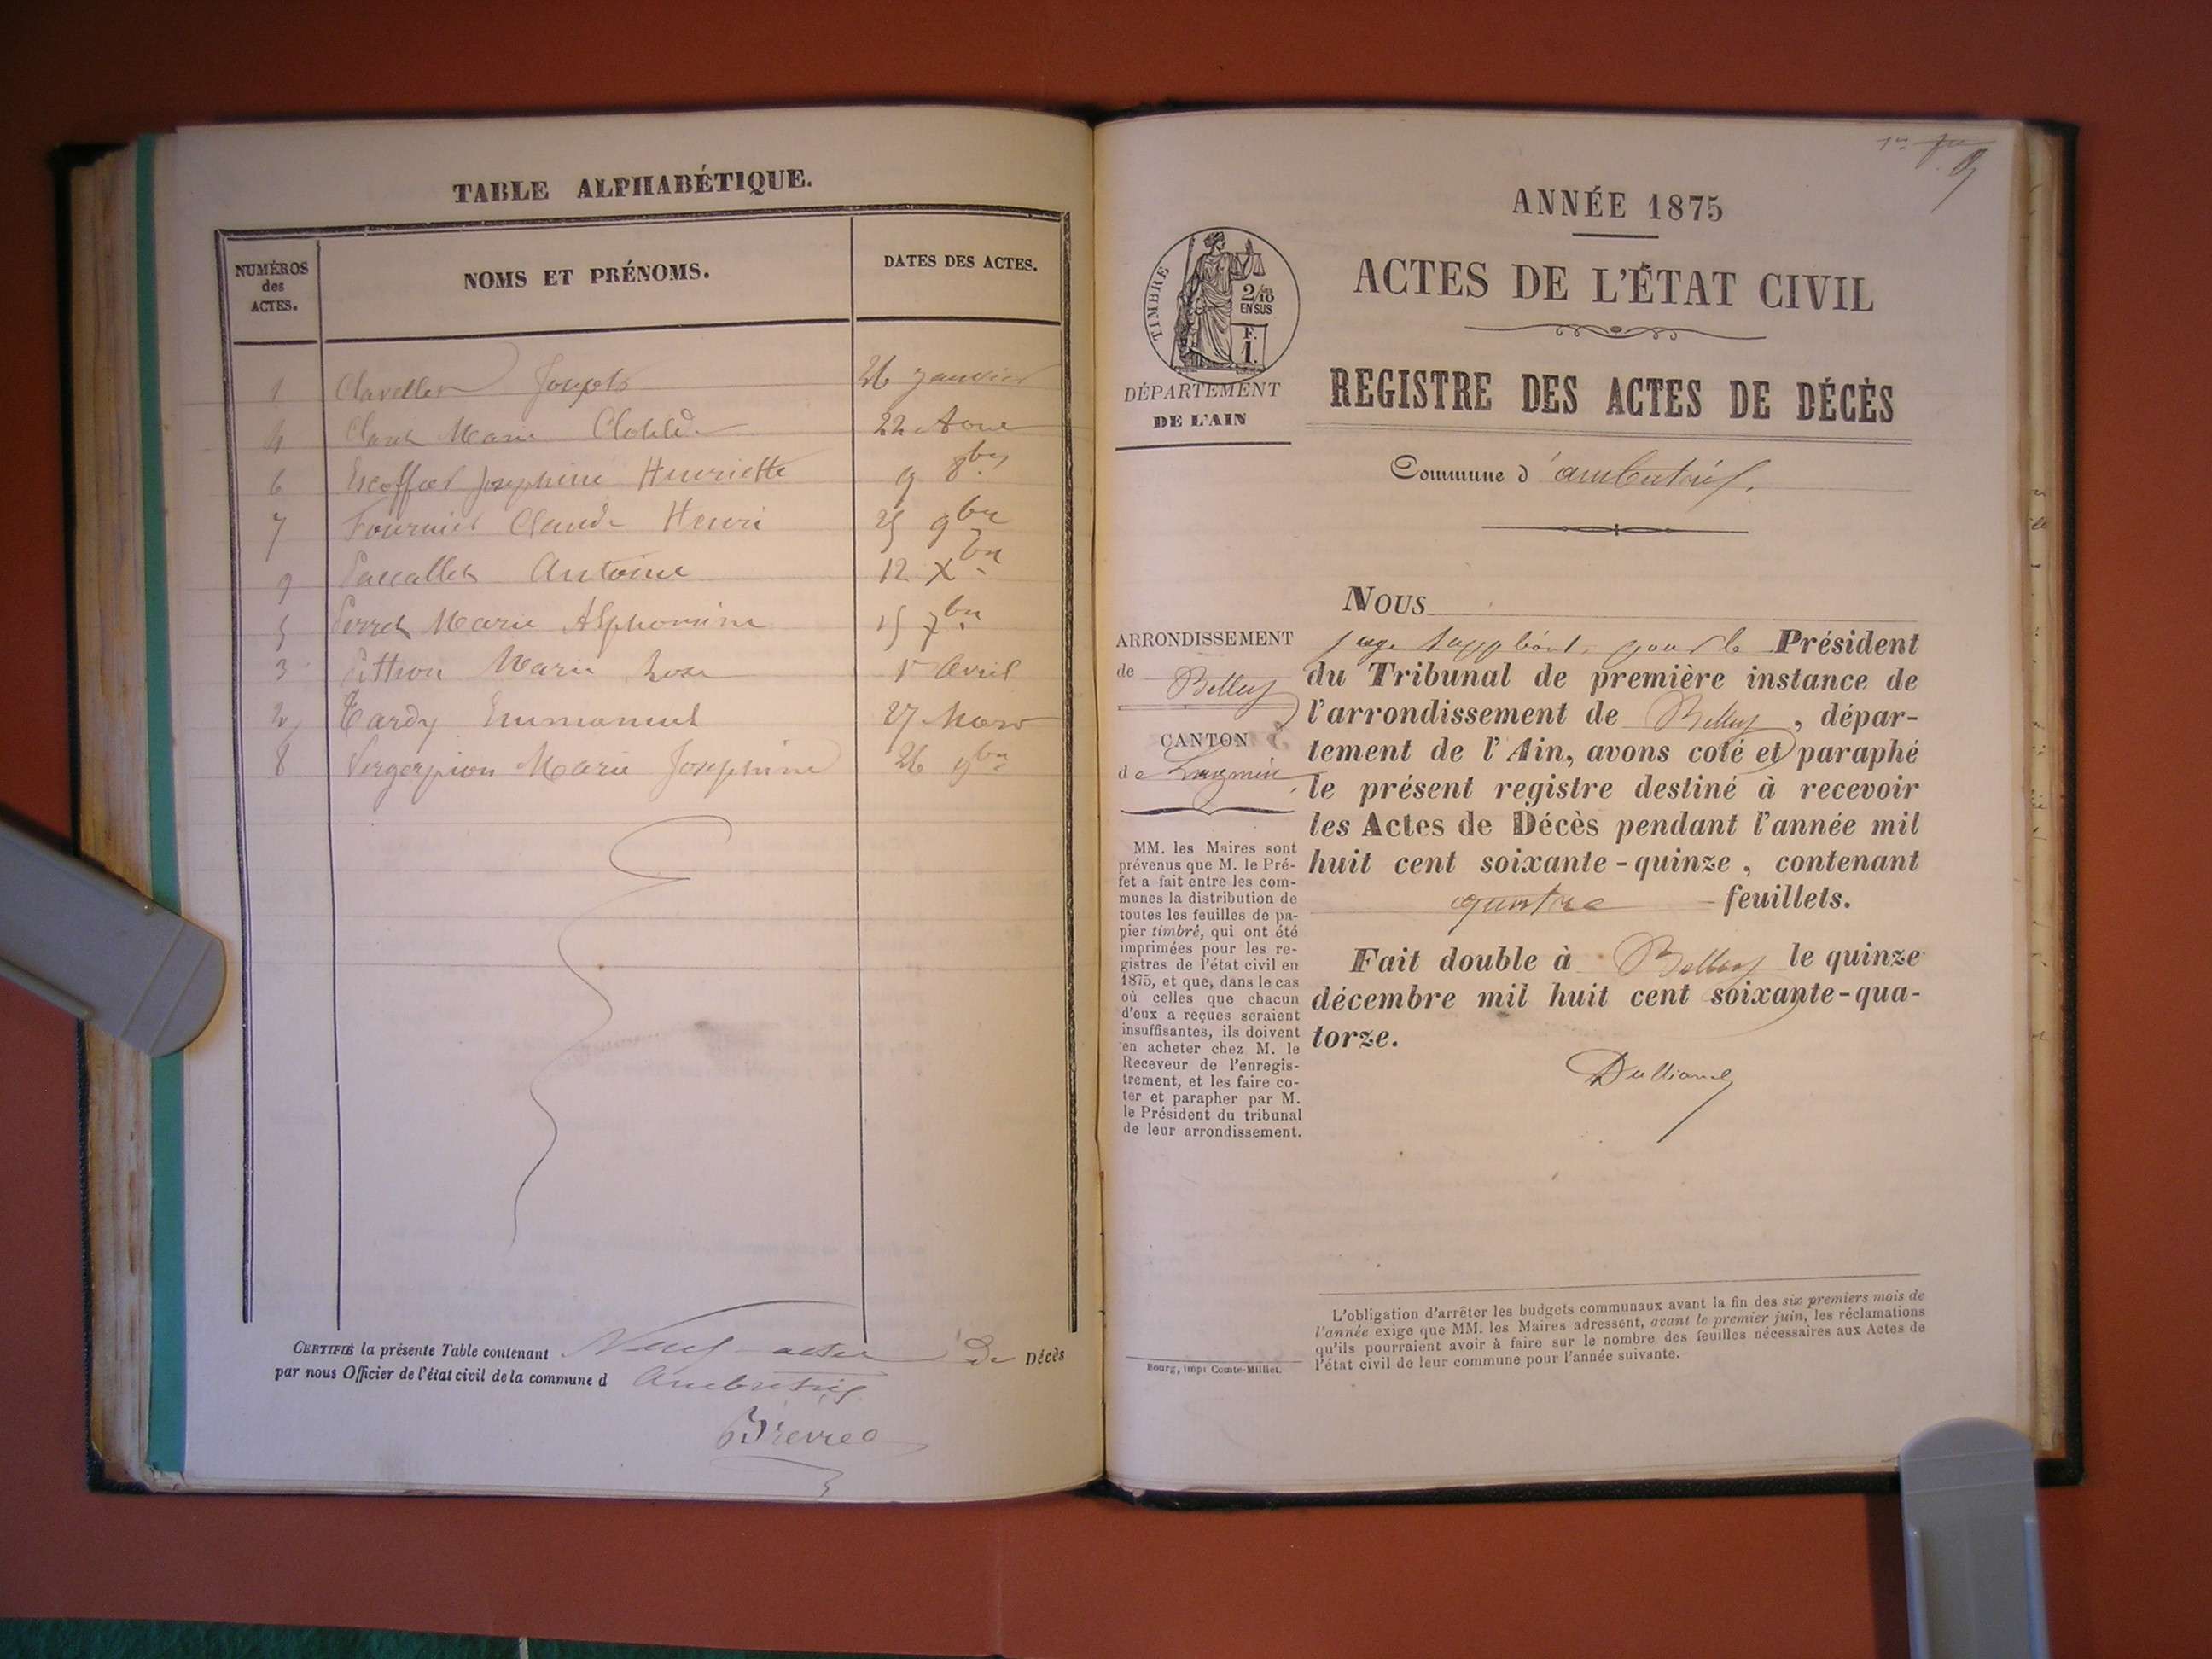 TABLE ALPHABÉTIQUE.
NUMÉROS
des
ACTES.
NOMS ET PRÉNOMS.
DATES DES ACTES.
1 Joseph 26 Janvier
4 Claret Marie Clotilde 22 Aout
6 Escoffier Josephine Henriette 9 8bre
7 Fournier Claude Henri 25 9bre
9 Antoine 12 Xbre
5 Perret Marie Alphonsine 15 7bre
3 Marie Rose 1r Avril
2 Tardy Emmanuel 27 Mars
8 Marie Josephine 26 9bre
CERTIFIÉ la présente Table contenant Neuf actes de Décès
par nous Officier de l'état civil de la commune d Ambutrix
1er
ANNÉE 1875
ACTES DE L'ÉTAT CIVIL
REGISTRE DES ACTES DE DÉCÈS
TIMBRE
2/10
EN SUS
F.
1.
DÉPARTEMENT
DE L'AIN
Commune d'ambutrix.
ARRONDISSEMENT
de Belley
CANTON
de Lagnieu
MM. les Maires sont
prévenus que M. le Pré-
fet a fait entre les com-
munes la distribution de
toutes les feuilles de pa-
pier timbré, qui ont été
imprimées pour les re-
gistres de l'état civil en
1875, et que, dans le cas
où celles que chacun
d'eux a reçues seraient
insuffisantes, ils doivent
en acheter chez M. le
Receveur de l'enregis-
trement, et les faire co-
ter et parapher par M.
le Président du tribunal
de leur arrondissement.
Bourg, imp. Comte-Milliet.
NOUS
juge suppléant pour le Président
du Tribunal de première instance de
l'arrondissement de Belley, dépar-
tement de l'Ain, avons coté et paraphé
le présent registre destiné à recevoir
les Actes de Décès pendant l'année mil
huit cent soixante-quinze, contenant
quatre feuillets.
Fait double à Belley le quinze
décembre mil huit cent soixante-qua-
torze.
L'obligation d'arrêter les budgets communaux avant la fin des six premiers mois de
l'année exige que MM. les Maires adressent, avant le premier juin, les réclamations
qu'ils pourraient avoir à faire sur le nombre des feuilles nécessaires aux Actes de
l'état civil de leur commune pour l'année suivante.